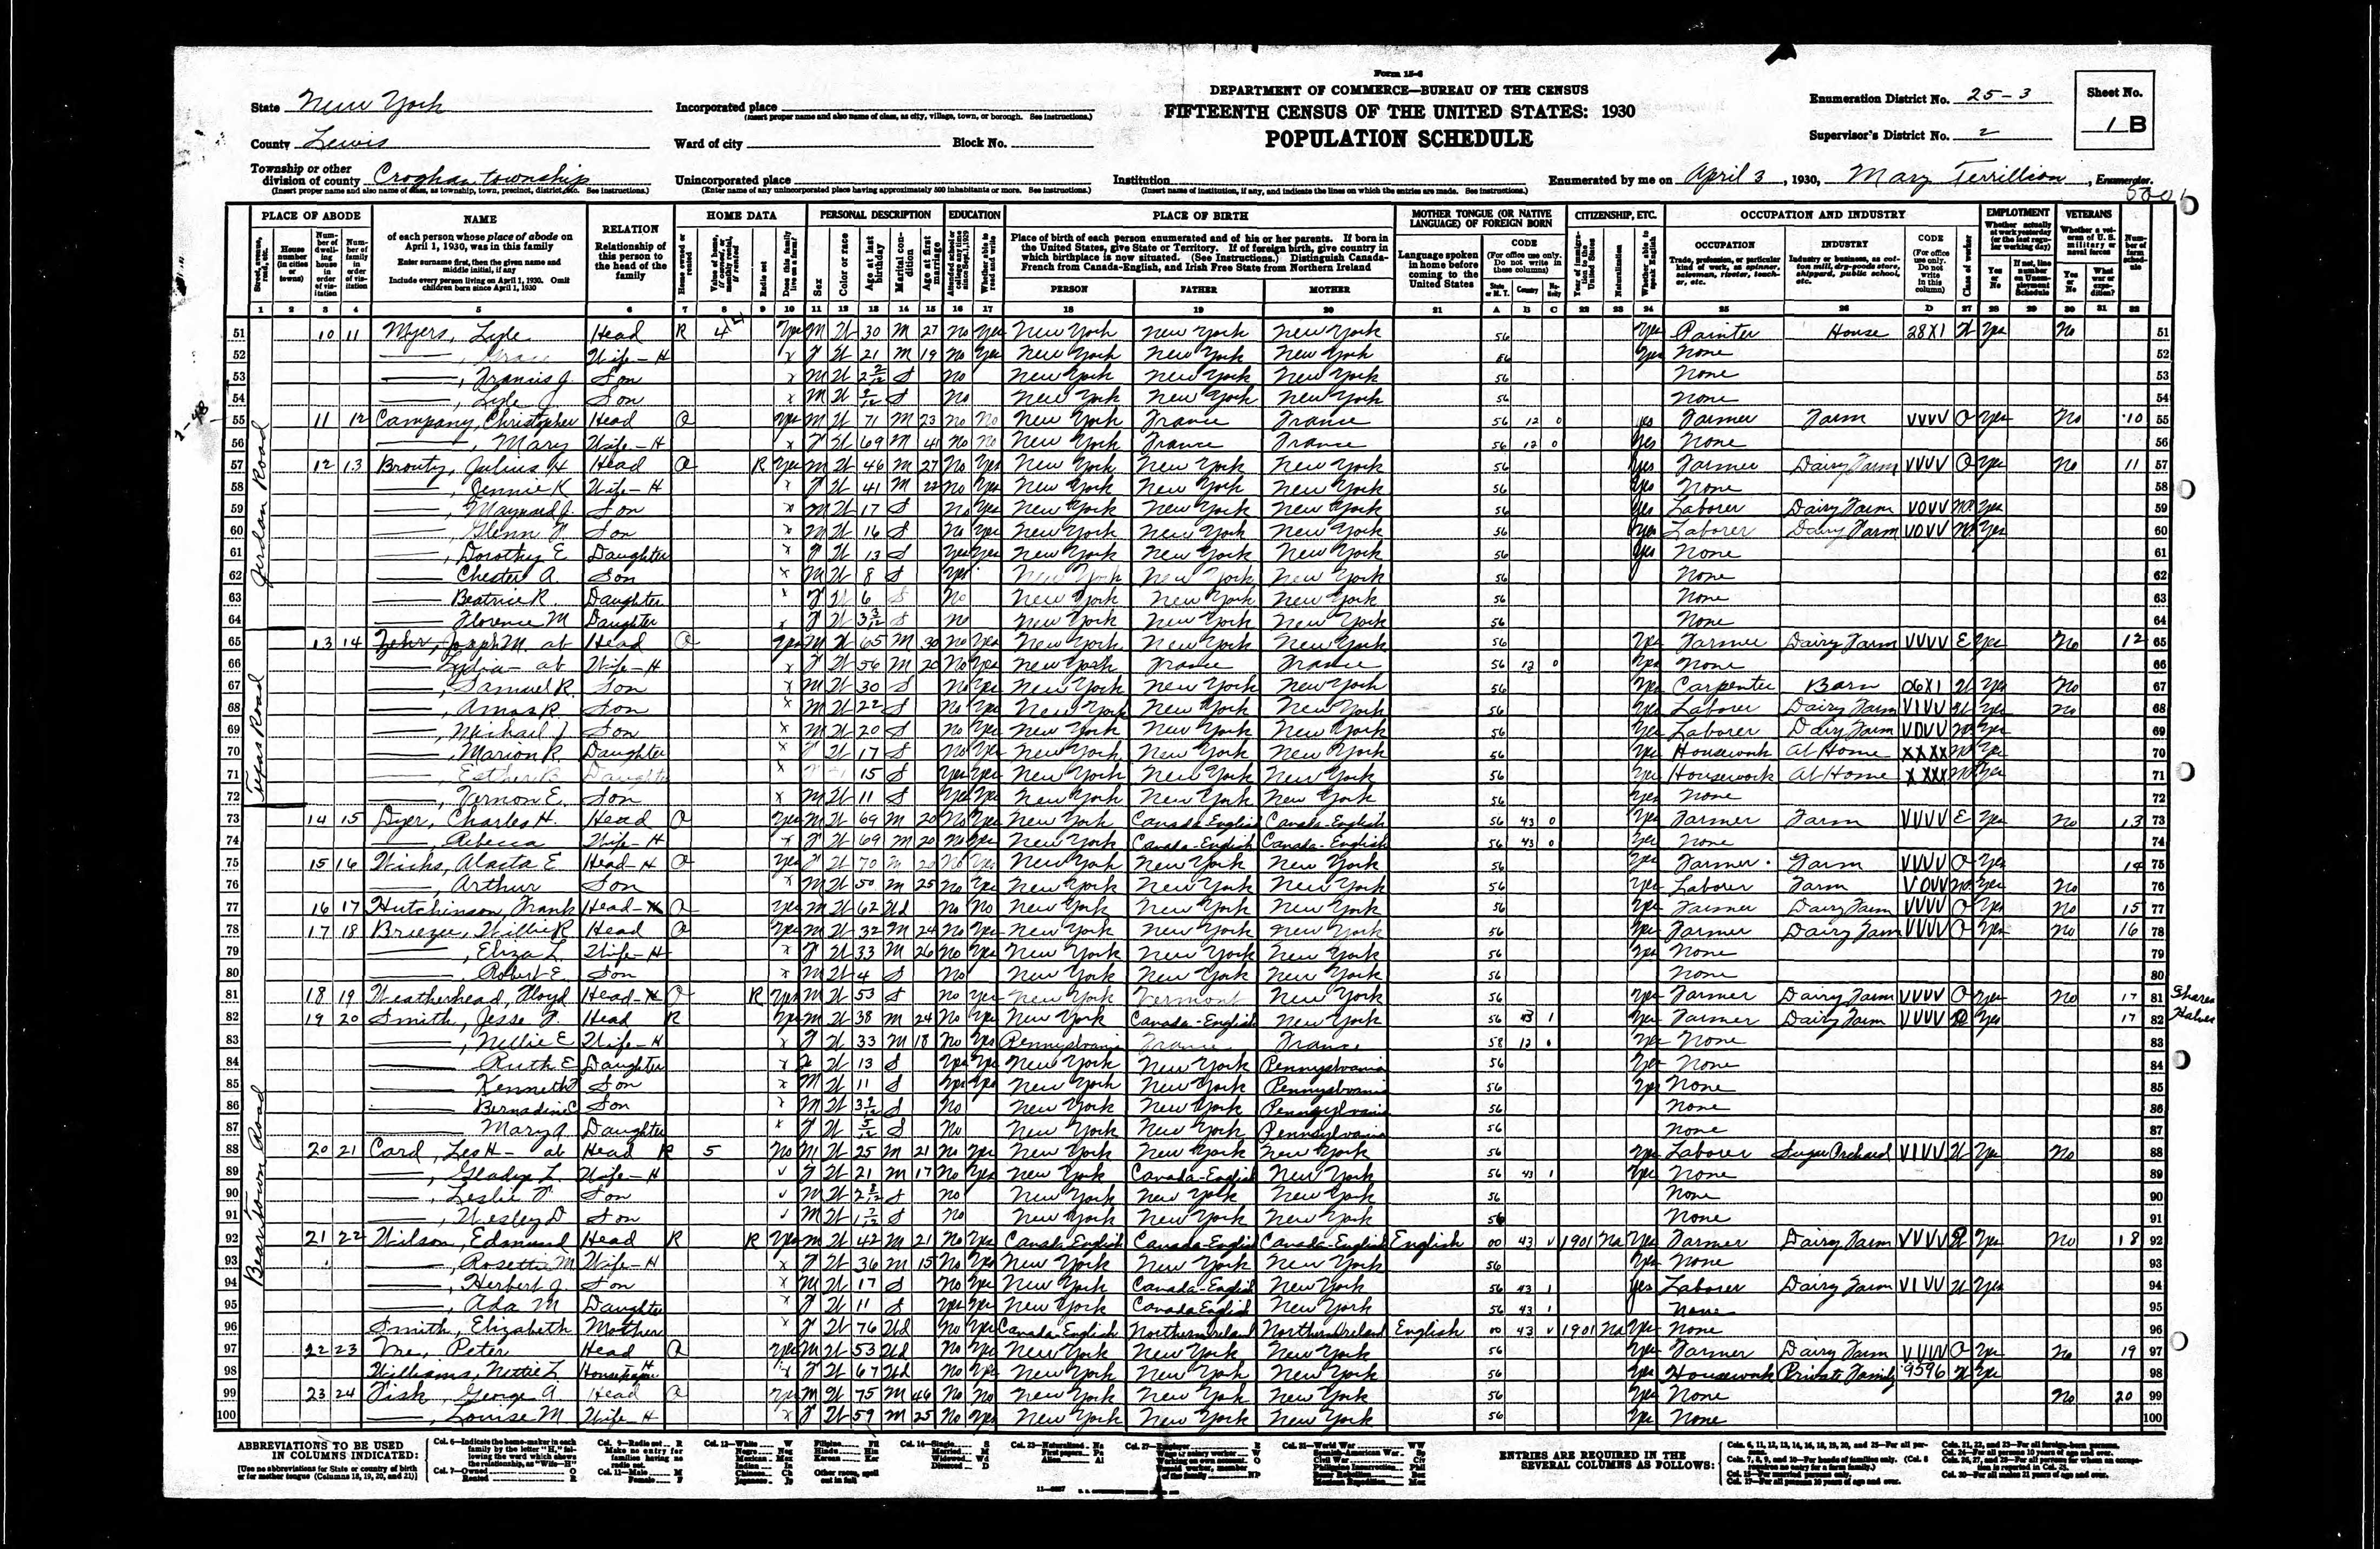 Form 15-6
State New York
Incorporated place
(Insert proper name and also name of class, as city, village, town, or borough. See instructions.)
DEPARTMENT OF COMMERCE—BUREAU OF THE CENSUS
FIFTEENTH CENSUS OF THE UNITED STATES: 1930
POPULATION SCHEDULE
Enumeration District No. 25-3
Sheet No.
1 B
County Lewis
Ward of city Block No.
Supervisor's District No. 2
Township or other division of county Croghan township
(Insert proper name and also name of class, as township, town, precinct, district, etc. See instructions.)
Unincorporated place
(Enter name of any unincorporated place having approximately 500 inhabitants or more. See instructions.)
Institution
(Insert name of institution, if any, and indicate the lines on which the entries are made. See instructions.)
Enumerated by me on April 3, 1930, Mary Terrillion, Enumerator.
PLACE OF ABODE NAME RELATION HOME DATA PERSONAL DESCRIPTION EDUCATION PLACE OF BIRTH MOTHER TONGUE (OR NATIVE LANGUAGE) OF FOREIGN BORN CITIZENSHIP, ETC. OCCUPATION AND INDUSTRY EMPLOYMENT VETERANS
of each person whose place of abode on April 1, 1930, was in this family
Enter surname first, then the given name and middle initial, if any
Include every person living on April 1, 1930. Omit children born since April 1, 1930
Relationship of this person to the head of the family
Place of birth of each person enumerated and of his or her parents. If born in the United States, give State or Territory. If of foreign birth, give country in which birthplace is now situated. (See Instructions.) Distinguish Canada-French from Canada-English, and Irish Free State from Northern Ireland
PERSON FATHER MOTHER
Language spoken in home before coming to the United States
OCCUPATION INDUSTRY CODE
51 10 11 Myers, Lyle Head R 4 Yes M W 30 M 27 No Yes New York New York New York 56 Yes Painter House 28X1 W Yes No 51
52 Wife-H x F W 21 M 19 No Yes New York New York New York 56 Yes None 52
53 , Francis J. Son x M W 2 S No New York New York New York 56 None 53
54 , Lyle J. Son x M W S No New York New York New York 56 None 54
55 11 12 Campany, Christopher Head O Yes M W 71 M 23 No No New York France France 56 12 0 Yes Farmer Farm VVVV O Yes No 10 55
56 , Mary Wife-H x F W 69 M 41 No No New York France France 56 12 0 Yes None 56
57 12 13 Brouty, Julius H Head O R Yes M W 46 M 27 No Yes New York New York New York 56 Yes Farmer Dairy Farm VVVV O Yes No 11 57
58 , Jennie K Wife-H x F W 41 M 22 No Yes New York New York New York 56 Yes None 58
59 , Maynard J. Son x M W 17 S No Yes New York New York New York 56 Yes Laborer Dairy Farm VOVV NP Yes 59
60 , Glenn Son x M W 16 S No Yes New York New York New York 56 Yes Laborer Dairy Farm VOVV NP Yes 60
61 , Dorothy E Daughter x F W 13 S Yes Yes New York New York New York 56 Yes None 61
62 Chester A. Son x M W 8 S Yes New York New York New York 56 None 62
63 Beatrice R Daughter x F W 6 S No New York New York New York 56 None 63
64 Florence M Daughter x F W 3 S No New York New York New York 56 None 64
65 13 14 Zehr, Joseph M. ab Head O Yes M W 65 M 30 No Yes New York New York New York 56 Yes Farmer Dairy Farm VVVV E Yes No 12 65
66 Lydia - ab Wife-H x F W 56 M 20 No Yes New York France France 56 12 0 Yes None 66
67 , Samuel R. Son x M W 30 S No Yes New York New York New York 56 Yes Carpenter Barn 06X1 W Yes No 67
68 , Amos R. Son x M W 22 S No Yes New York New York New York 56 Yes Laborer Dairy Farm VIVV W Yes No 68
69 , Michail J Son x M W 20 S No Yes New York New York New York 56 Yes Laborer Dairy Farm VOVV NP Yes 69
70 , Marion R. Daughter x F W 17 S No Yes New York New York New York 56 Yes Housework At Home XXXX NP Yes 70
71 , Esther B. Daughter x 15 S Yes Yes New York New York New York 56 Yes Housework At Home XXXX NP Yes 71
72 , Vernon E. Son x M W 11 S Yes Yes New York New York New York 56 Yes None 72
73 14 15 Dyer, Charles H. Head O Yes M W 69 M 20 No Yes New York Canada-English Canada-English 56 43 0 Yes Farmer Farm VVVV E Yes No 13 73
74 , Rebecca Wife-H x F W 69 M 20 No Yes New York Canada-English Canada-English 56 43 0 Yes None 74
75 15 16 Wicks, Alacta E Head-H O Yes F W 70 M 20 No Yes New York New York New York 56 Yes Farmer Farm VVVV O Yes 14 75
76 , Arthur Son x M W 50 M 25 No Yes New York New York New York 56 Yes Laborer Farm VOVV NP Yes No 76
77 16 17 Hutchinson, Frank Head O Yes M W 62 Wd No No New York New York New York 56 Yes Farmer Dairy Farm VVVV O Yes No 15 77
78 17 18 Briezee, Willie R Head O Yes M W 32 M 24 No Yes New York New York New York 56 Yes Farmer Dairy Farm VVVV O Yes No 16 78
79 , Eliza L. Wife-H x F W 33 M 26 No Yes New York New York New York 56 Yes None 79
80 , Robert E. Son x M W 4 S No New York New York New York 56 None 80
81 18 19 Weatherhead, Floyd Head O R Yes M W 53 S No Yes New York Vermont New York 56 Yes Farmer Dairy Farm VVVV O Yes No 17 81 Shares
82 19 20 Smith, Jesse F. Head R Yes M W 38 M 24 No Yes New York Canada-English New York 56 43 1 Yes Farmer Dairy Farm VVVV O Yes 17 82 Halves
83 , Nellie E Wife-H x F W 33 M 18 No Yes Pennsylvania France France 58 12 0 Yes None 83
84 Ruth E Daughter x F W 13 S Yes Yes New York New York Pennsylvania 56 Yes None 84
85 Kenneth F Son x M W 11 S Yes Yes New York New York Pennsylvania 56 Yes None 85
86 Bernadine C Son x M W 3 S No New York New York Pennsylvania 56 None 86
87 Mary A Daughter x F W 5/12 S No New York New York Pennsylvania 56 None 87
88 20 21 Card, Les H - ab Head R 5 No M W 25 M 21 No Yes New York New York New York 56 Yes Laborer Sugar Orchard VIVV W Yes No 88
89 , Gladys L. Wife-H F W 21 M 17 No Yes New York Canada-English New York 56 43 1 Yes None 89
90 , Leslie F. Son M W 2 8/12 S No New York New York New York 56 None 90
91 , Wesley D Son M W 1 S No New York New York New York 56 None 91
92 21 22 Wilson, Edmund Head R R Yes M W 42 M 21 No Yes Canada-English Canada-English Canada-English English 00 43 V 1901 Na Yes Farmer Dairy Farm VVVV Yes No 18 92
93 , Rosetta M Wife-H x F W 36 M 15 No Yes New York New York New York 56 Yes None 93
94 , Herbert J. Son x M W 17 S No Yes New York Canada-English New York 56 43 1 Yes Laborer Dairy Farm VIVV W Yes 94
95 , Ada M Daughter x F W 11 S Yes Yes New York Canada English New York 56 43 1 None 95
96 Smith, Elizabeth Mother x F W 76 Wd No Yes Canada-English Northern Ireland Northern Ireland English 00 43 V 1901 Na Yes None 96
97 22 23 Peter Head O Yes M W 53 Wd No Yes New York New York New York 56 Yes Farmer Dairy Farm VVVV O Yes No 19 97
98 Williams, Nettie L. Housekeeper H x F W 67 Wd No Yes New York New York New York 56 Yes Housework Private Family 9596 W Yes 98
99 23 24 Fisk, George A. Head O Yes M W 75 M 46 No No New York New York New York 56 Yes None No 20 99
100 , Louise M Wife-H x F W 59 M 25 No Yes New York New York New York 56 Yes None 100
Jordan Road
Texas Road
Beartown Road
ABBREVIATIONS TO BE USED IN COLUMNS INDICATED:
[Use no abbreviations for State or country of birth or for mother tongue (Columns 18, 19, 20, and 21)]
ENTRIES ARE REQUIRED IN THE SEVERAL COLUMNS AS FOLLOWS: